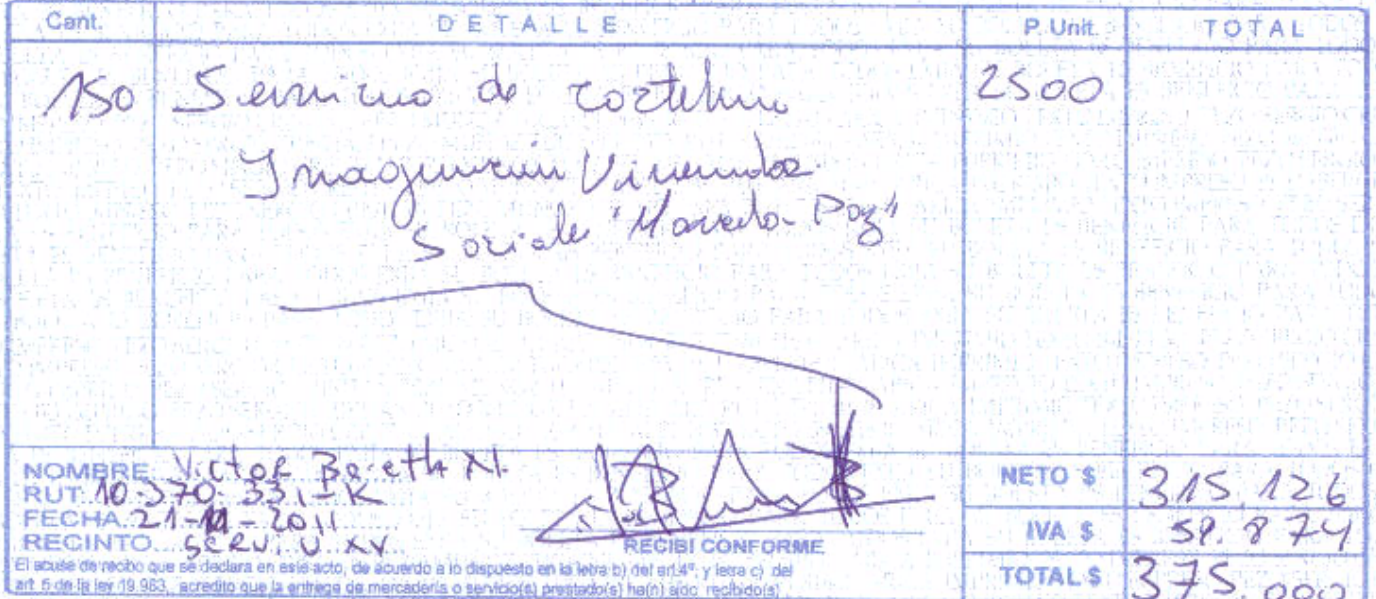 Cant. DETALLE P. Unit. TOTAL
150 Servicio de coctelería 2500
Inaguración Viviendas
Sociales "Marcela Paz"
NOMBRE: Victor Beretta N.
RUT: 10.370.331-K
FECHA: 21-11-2011
RECINTO: SERVIU XV
RECIBI CONFORME
NETO $ 315.126
IVA $ 59.874
TOTAL $ 375.000
El acuse de recibo que se declara en este acto, de acuerdo a lo dispuesto en la letra b) del art.4º, y letra c) del
art. 5 de la ley 19.983, acredito que la entrega de mercadería o servicio(s) prestado(s) ha(n) sido recibido(s)